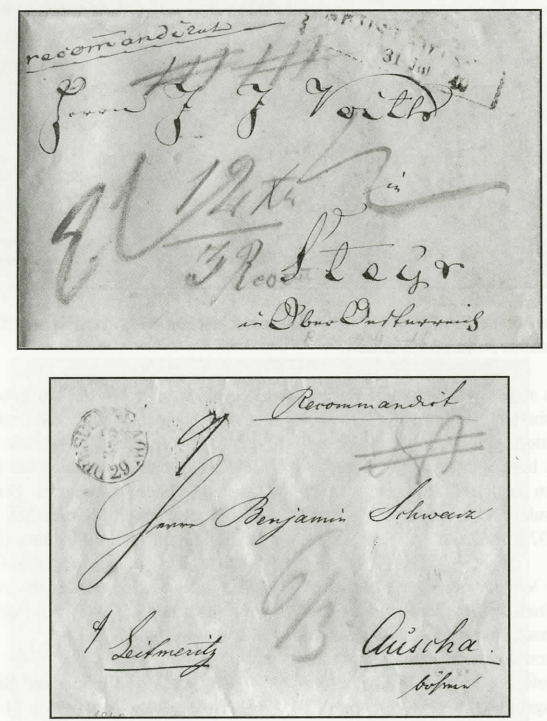 recomandirt
31 Jul
Herrn J J Voith
12 Xr
3 Reco
in
Steyr
in Ober Oesterreich
Recommandirt
29
9
Herrn Benjamin Schwarz
6/3
Leitmeritz
Auscha.
böhmen